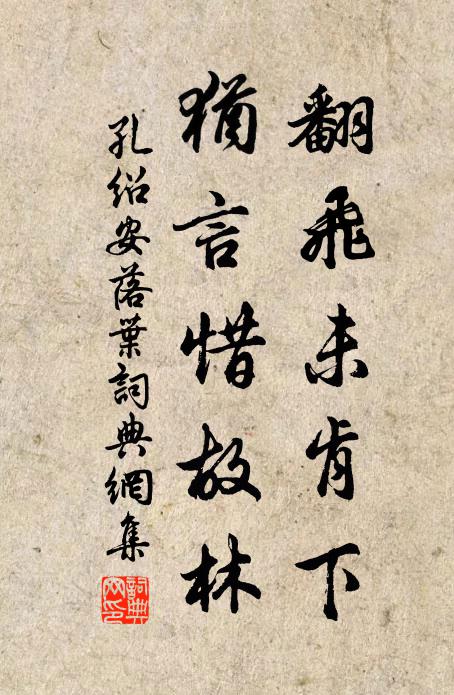 翻飛未肯下
猶言惜故林
孔紹安落葉詞典網集
詞典網印